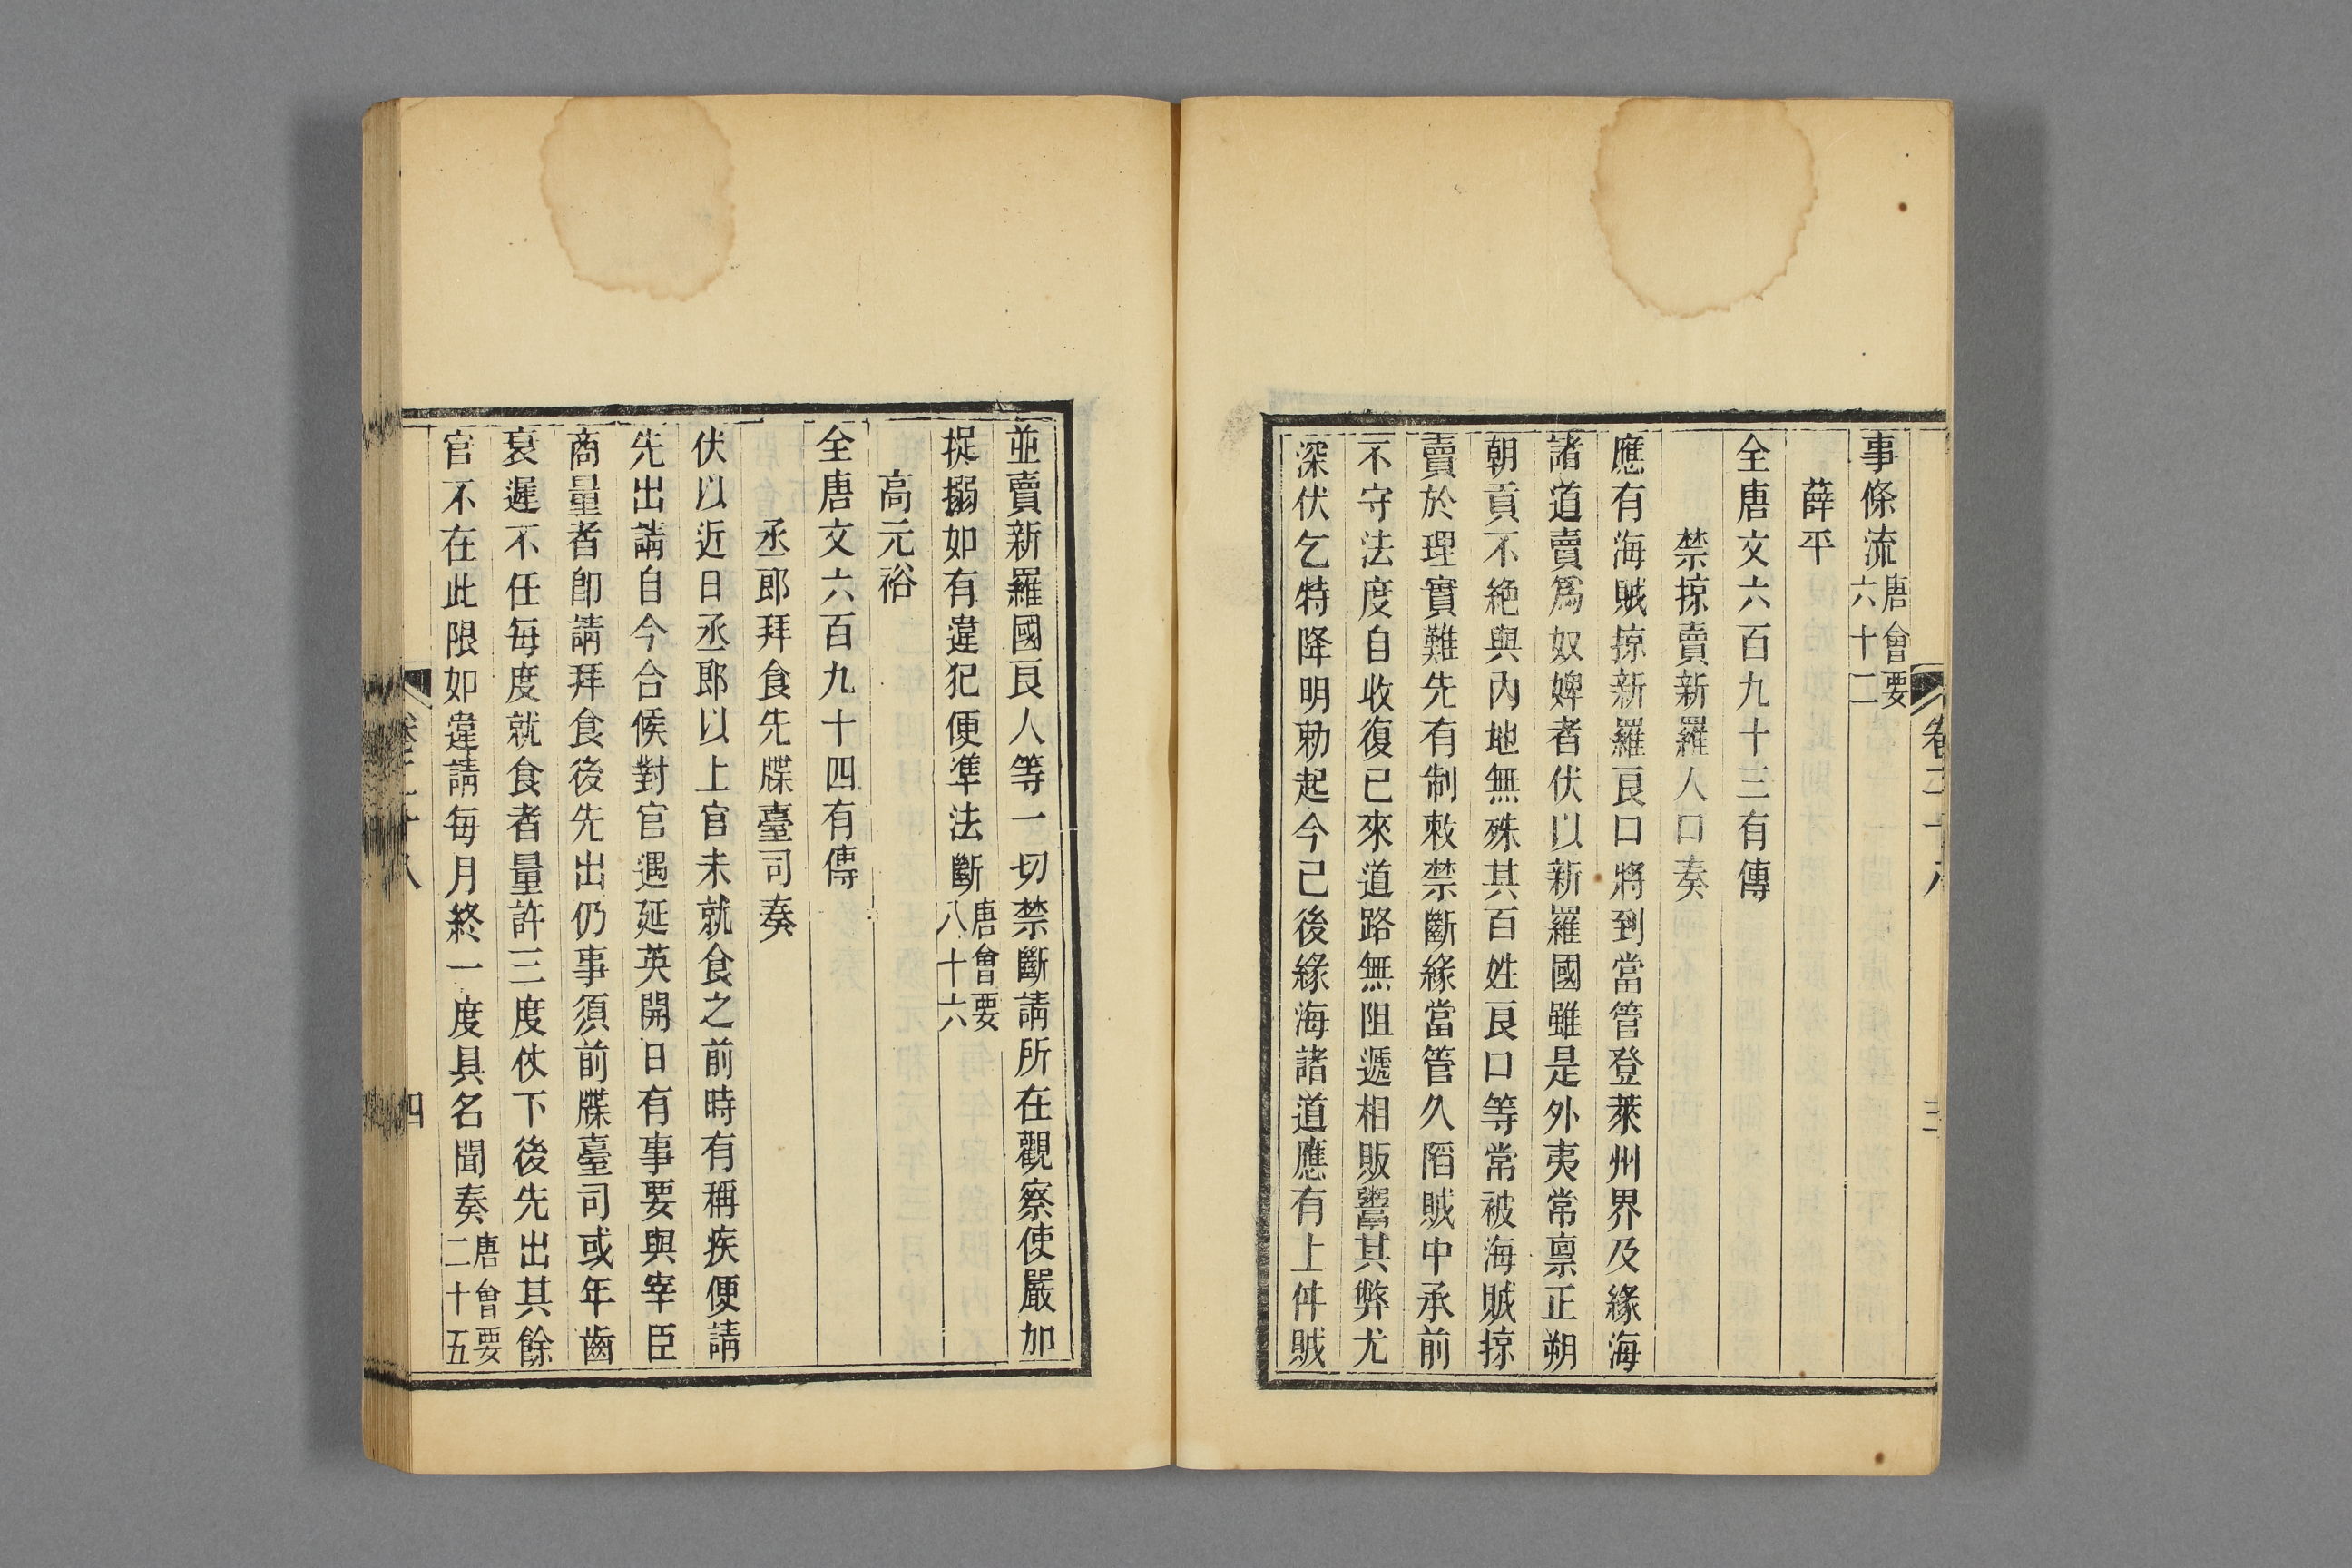 事條流唐會要六十二
薛平
全唐文六百九十三有傳
禁掠賣新羅人口奏
應有海賊掠新羅良口將到當管登萊州界及緣海
諸道賣爲奴婢者伏以新羅國雖是外夷常稟正朔
朝貢不絶與內地無殊其百姓良口等常被海賊掠
賣於理實難先有制敕禁斷緣當管久陷賊中承前
不守法度自收復已來道路無阻遞相販鬻其弊尤
深伏乞特降明勅起今已後緣海諸道應有上件賊
並賣新羅國良人等一切禁斷請所在觀察使嚴加
捉搦如有違犯便準法斷唐會要八十六
高元裕
全唐文六百九十四有傳
丞郎拜食先牒臺司奏
伏以近日丞郎以上官未就食之前時有稱疾便請
先出請自今合候對官遇延英開日有事要與宰臣
商量者卽請拜食後先出仍事須前牒臺司或年齒
衰遲不任每度就食者量許三度仗下後先出其餘
官不在此限如違請每月終一度具名聞奏唐會要二十五
四